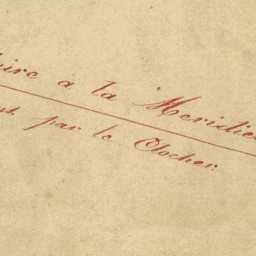 à la Meridie
par le Clocher.